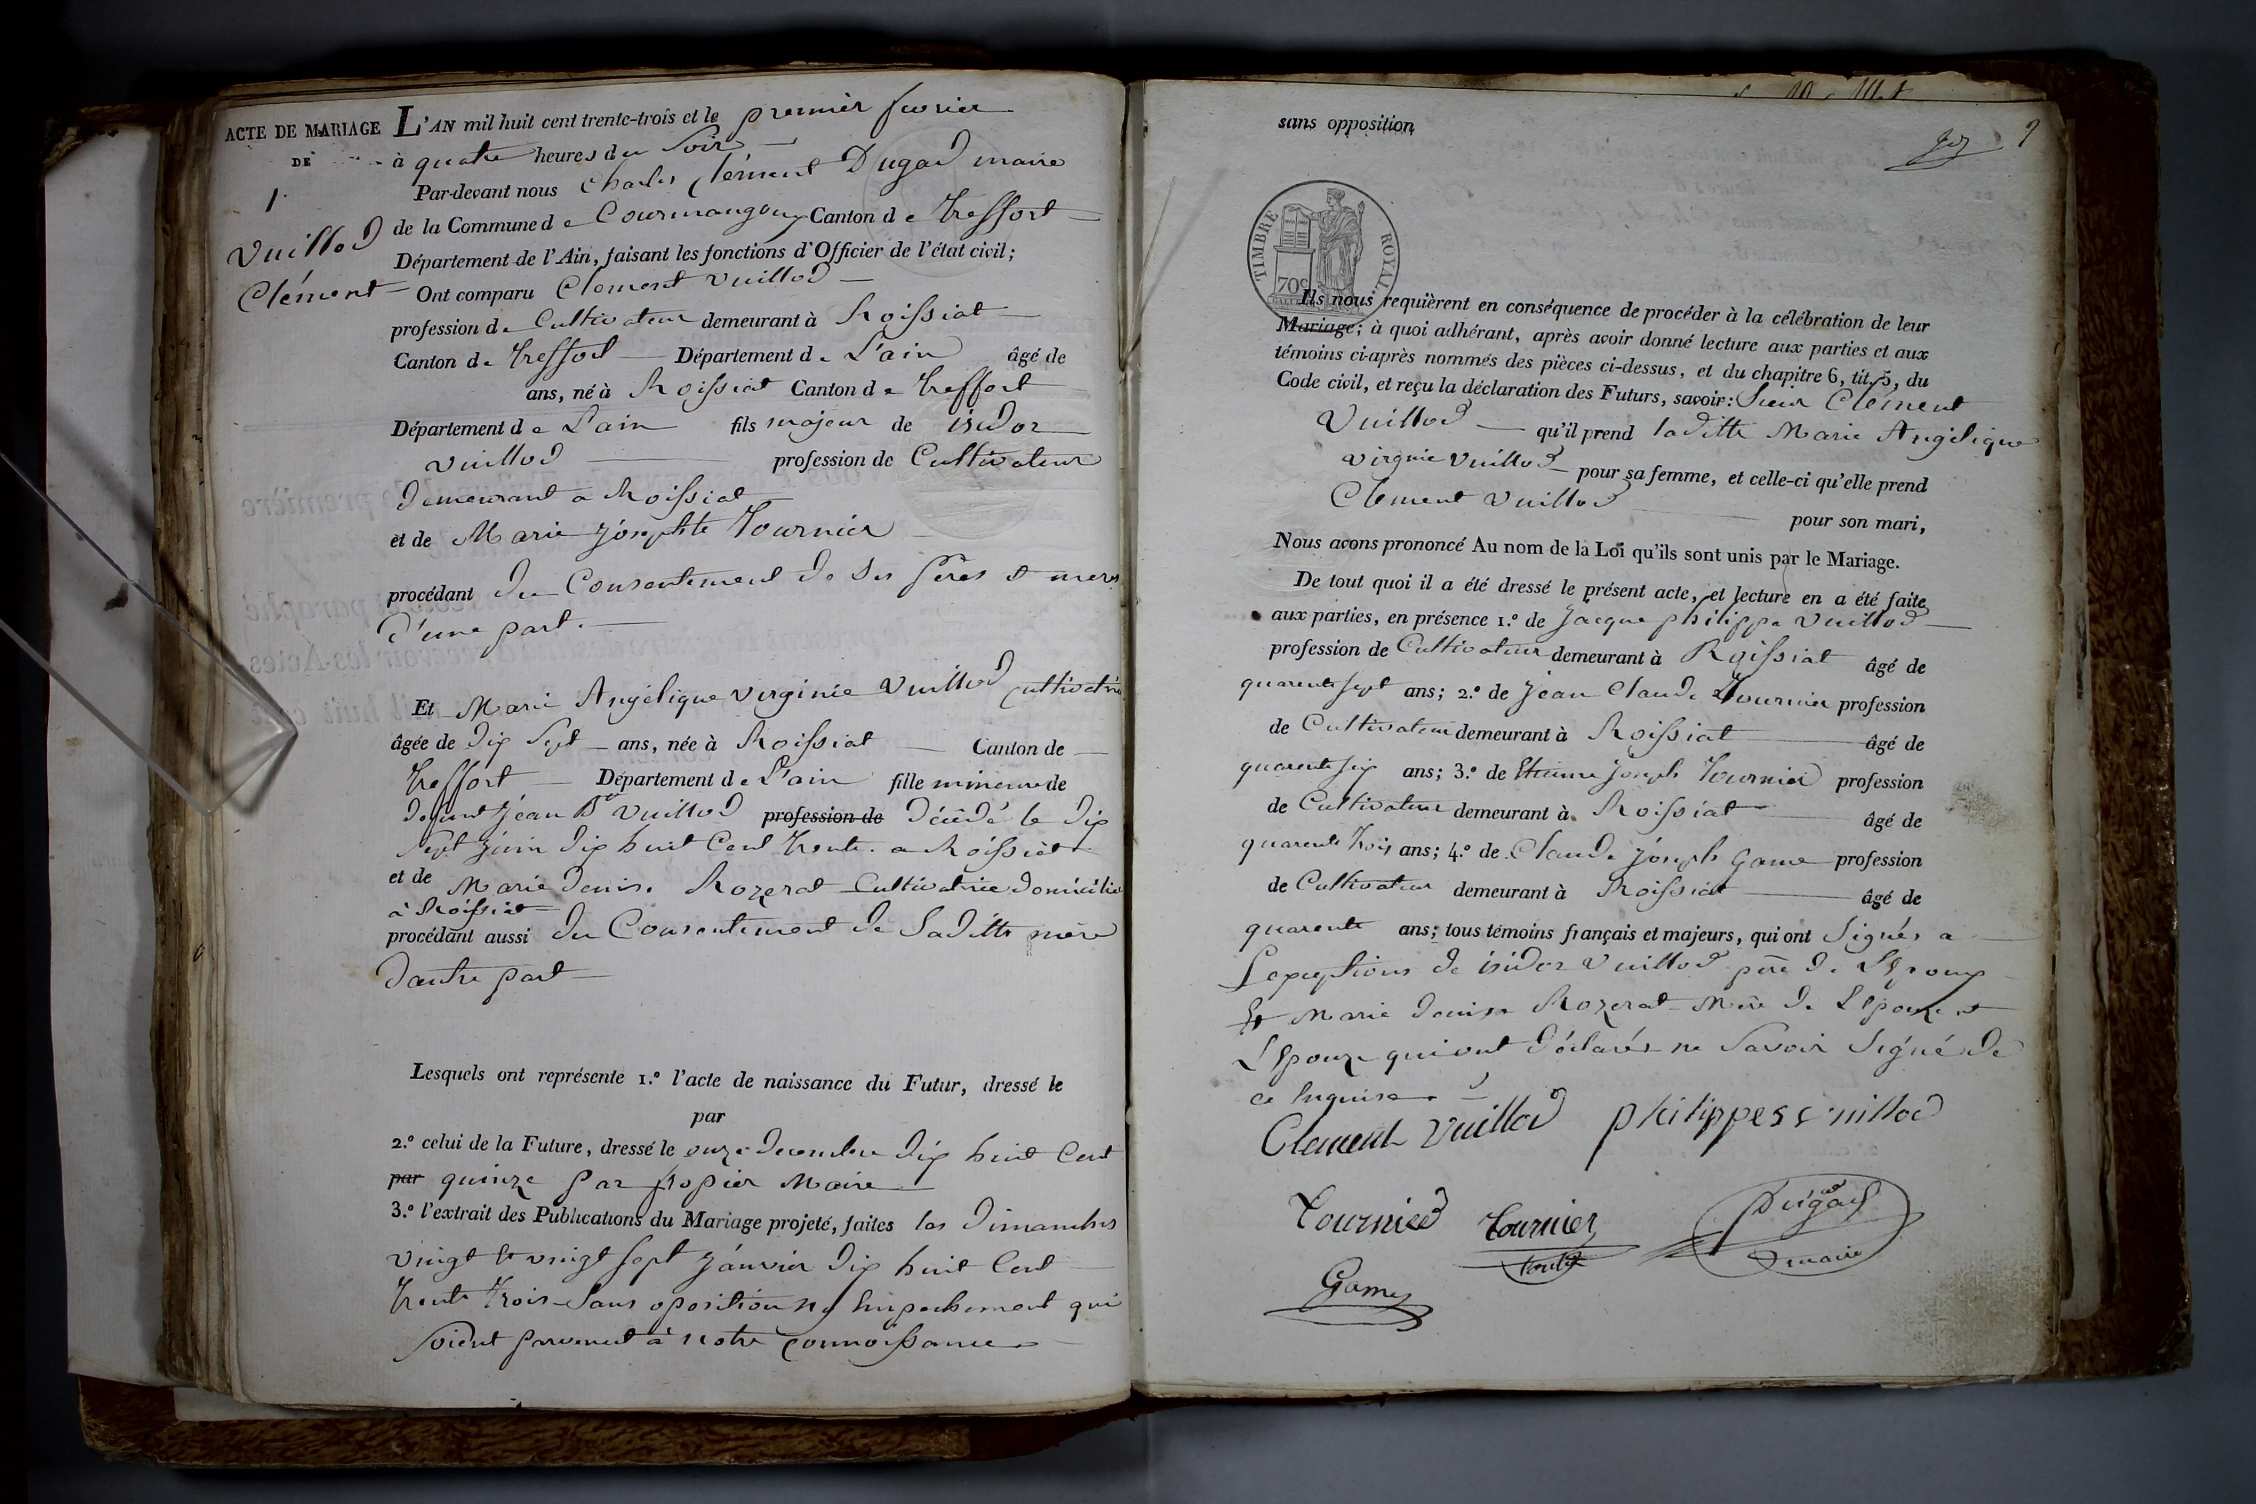 ACTE DE MARIAGE
DE
1.
Vuillod
Clément
L'AN mil huit cent trente-trois et le premier fevrier
à quatre heures du Soir
Par-devant nous Charles Clément Dugad maire
de la Commune de Courmangoux Canton de Treffort
Département de l'Ain, faisant les fonctions d'Officier de l'état civil;
Ont comparu Clement Vuillod
profession de Cultivateur demeurant à Roissiat
Canton de Treffort Département de L'ain âgé de
ans, né à Roissiat Canton de Treffort
Département de L'ain fils majeur de isidor
vuillod profession de Cultivateur
demeurant a Roissiat
et de Marie Josephte Tournier
procédant du Consentement de ses Péres et meres
d'une part.
Et Marie Angélique virginie Vuillod Cultivatrice
âgée de dix Sept ans, née à Roissiat Canton de
Treffort Département de L'ain fille mineure de
defunt Jean Bte Vuillod profession de décédé le dix
Sept Juin dix huit Cent Trente a Roissiat
et de Marie denise Rozerat Cultivatrice domicilie
a Roissiat
procédant aussi du Consentement de Saditte mère
dautre part
Lesquels ont représente 1.º l'acte de naissance du Futur, dressé le
par
2.º celui de la Future, dressé le onze decembre dix huit Cent
par quinze par Maire
3.º l'extrait des Publications du Mariage projeté, faites les dimanches
vingt et vingt sept Janvier dix huit Cent
Trente Trois Sans oposition ny Empechement qui
soient parvenut à notre connoissance
sans opposition
9
TIMBRE ROYAL
70c
Ils nous requièrent en conséquence de procéder à la célébration de leur
Mariage; à quoi adhérant, après avoir donné lecture aux parties et aux
témoins ci-après nommés des pièces ci-dessus, et du chapitre 6, tit. 5, du
Code civil, et reçu la déclaration des Futurs, savoir: Sieur Clément
Vuillod qu'il prend laditte Marie Angélique
virgnie Vuillod pour sa femme, et celle-ci qu'elle prend
Clement Vuillod pour son mari,
Nous avons prononcé Au nom de la Loi qu'ils sont unis par le Mariage.
De tout quoi il a été dressé le présent acte, et lecture en a été faite
aux parties, en présence 1.º de Jacque philippe Vuillod
profession de Cultivateur demeurant à Roissiat âgé de
quarente sept ans; 2.º de Jean Claude Tournier profession
de Cultivateur demeurant à Roissiat âgé de
quarente six ans; 3.º de Etienne Joseph Tournier profession
de Cultivateur demeurant à Roissiat âgé de
quarente Trois ans; 4.º de Claude Joseph Game profession
de Cultivateur demeurant à Roissiat âgé de
quarente ans; tous témoins français et majeurs, qui ont Signés a
Lexceptions de isidor Vuillod père de Lépoux
Et Marie denise Rozerat Mère de Lépouze et
Lépouze qui ont déclarés ne Savoir Signé de
ce Enquise
Clement Vuillod philippes Vuillod
Tournier Tournier Dugad
maire
Game